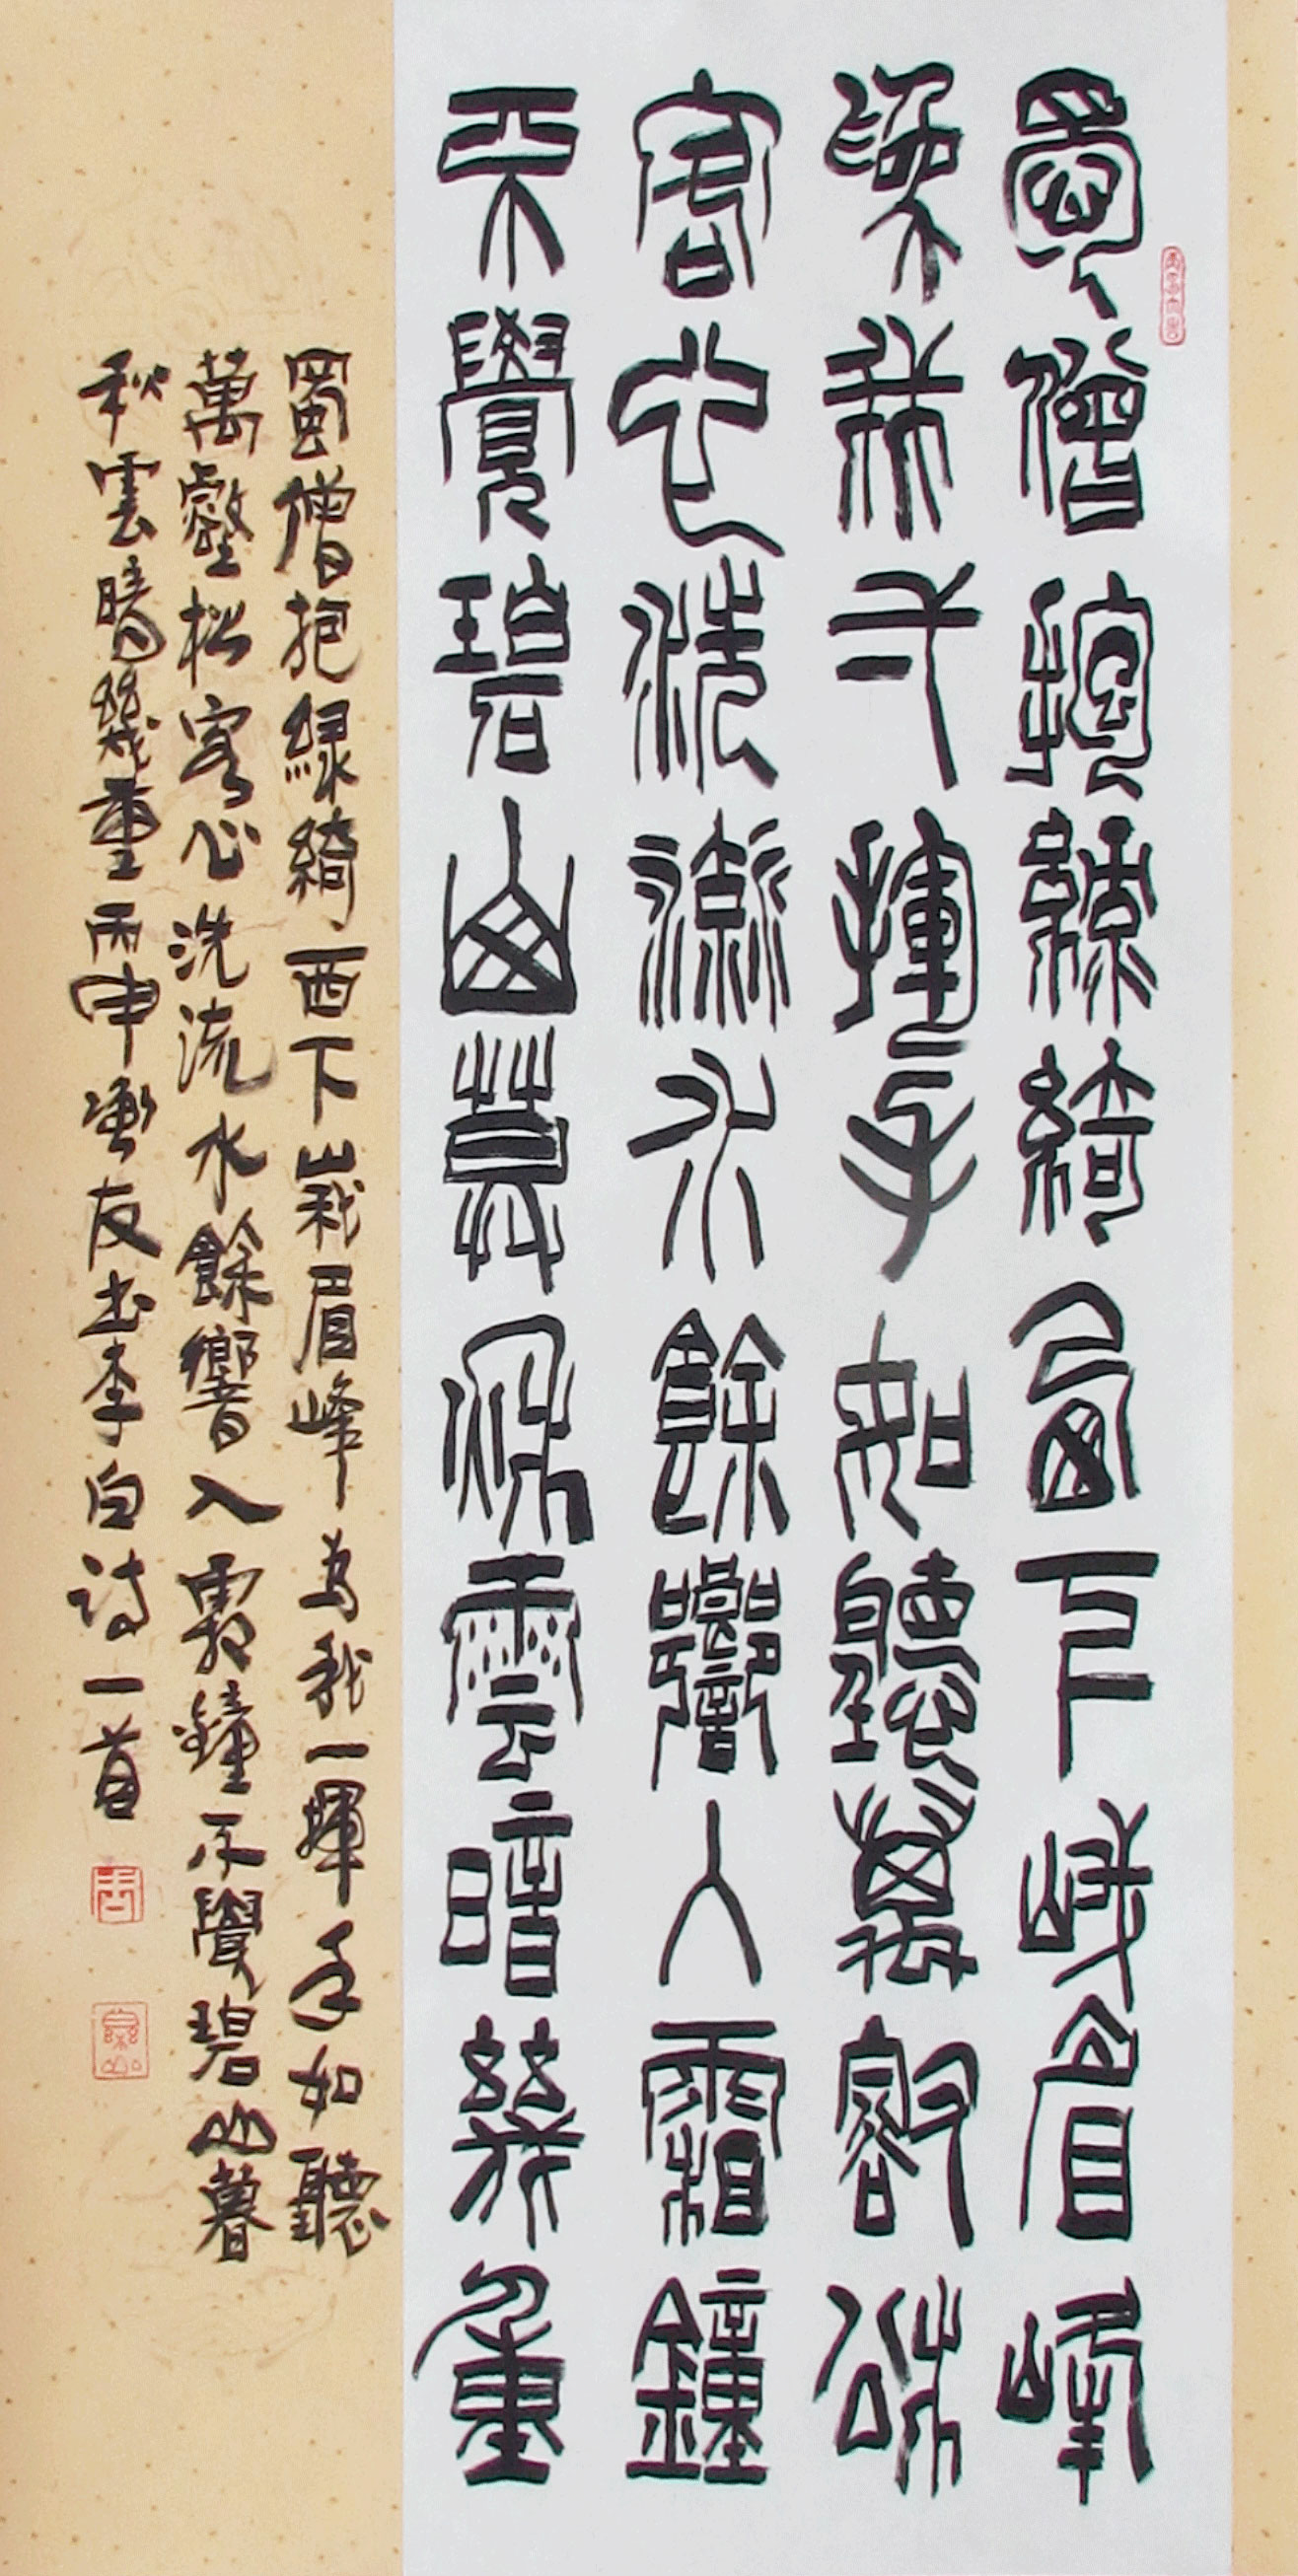 蜀僧抱綠綺西下峨眉峰
為我一揮手如聽萬壑松
客心洗流水餘響入霜鐘
不覺碧山暮秋雲暗幾重
蜀僧抱綠綺西下峩眉峰為我一揮手如聽
萬壑松客心洗流水餘響入霜鐘不覺碧山暮
秋雲暗幾重丙申友书李白诗一首